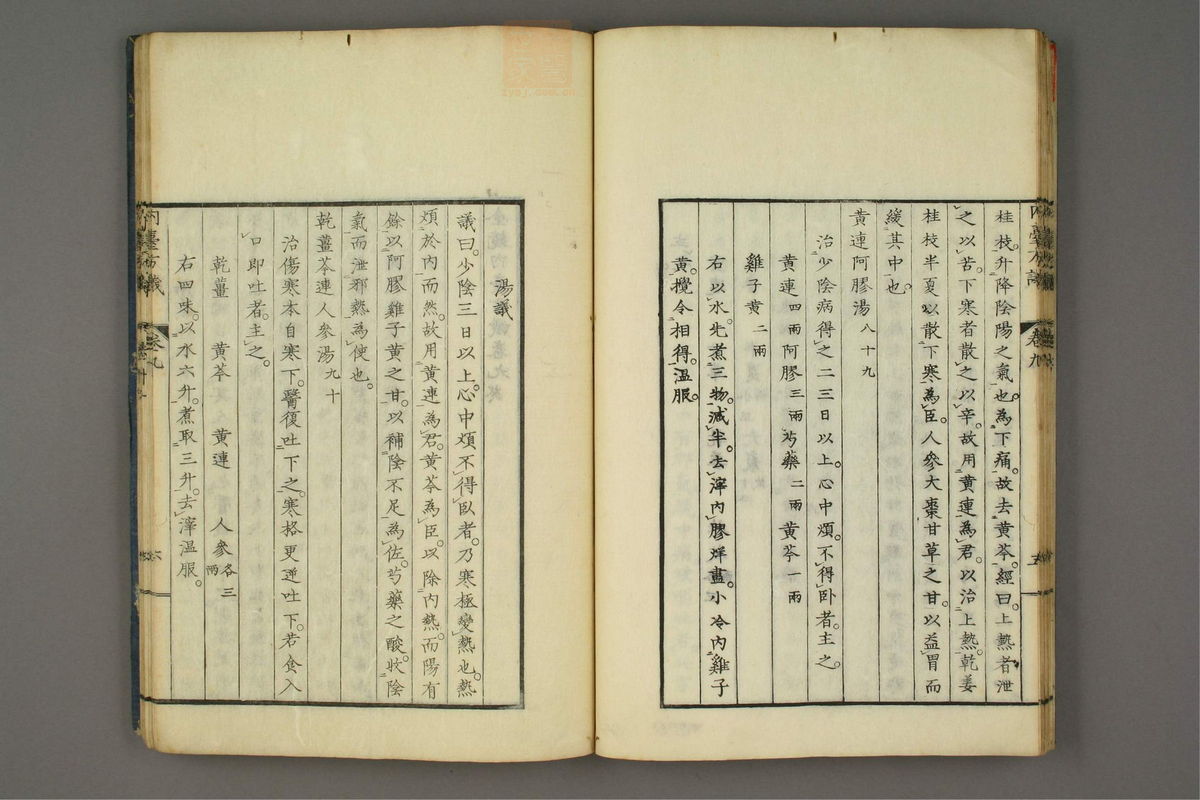 桂枝升降陰陽之氣也。為下痛。故去黃芩。經曰。上熱者泄
之以苦。下寒者散之以辛。故用黃連為君。以治上熱。乾姜
桂枝半夏以散下寒為臣。人參大棗甘草之甘。以益胃而
緩其中也。
黃連阿膠湯八十九
治少陰病得之二三日以上。心中煩。不得臥者。主之。
黃連四兩阿膠三兩芍藥二兩黃芩一兩
雞子黃二兩
右以水先煮三物。減半。去滓內膠烊盡。小冷內雞子
黃。攪令相得。溫服。
內臺方議 卷九
五
湯議
議曰。少陰三日以上。心中煩不得臥者。乃寒極變熱也。熱
煩於內而然。故用黃連為君。黃芩為臣。以除內熱。而陽有
餘以阿膠雞子黃之甘。以補陰不足為佐。芍藥之酸收陰
氣而泄邪熱為使也。
乾薑芩連人參湯九十
治傷寒本自寒下。醫復吐下之。寒格更逆吐下。若食入
口即吐者。主之。
乾薑 黃芩 黃連 人參各三兩
右四味。以水六升。煮取三升。去滓溫服。
內臺方議 卷九
六